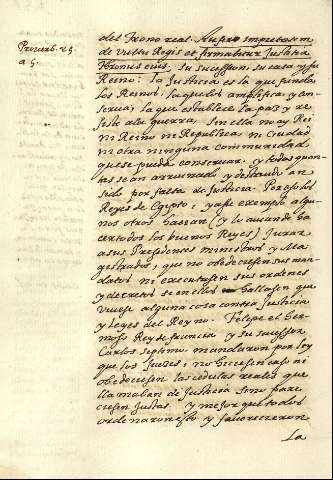 Proverb. 25.
a 5.
del trono real. Aufer impietatem
de vultu Regis et firmabitur Justitia
thronus eius, su sucession, su casa y su
Reino: la Justicia es la que funda
los Reinos, la que los amplifica y con
serua; la que establece la paz y re
siste a la guerra. Sin ella no ay Rei
ni Reino ni Republica, ni ciudad
ni otra ninguna communidad
que se pueda conseruar. y todas quan
tas se an arruinado y an
sido por falta de Justicia. Por esso los
Reyes de Egypto, y a su exemplo algu
nos otros hacian (y lo auian de ha
cer todos los buenos Reyes) Jurar
a sus Presidentes ministros y Ma
gestrados, que no obedeciesen sus man
datos ni executasen sus ordenes
y decretos si en ellos hallasen que
uiniese alguna cosa contra Justicia
y leyes del Reyno. Felipe el her
moso Rey de francia y su sucessor
Carlos septimo mandaron por ley
que los Jueces, no hiciesen caso ni
obedeciesen las cedulas reales que
llamaban de Justicia sino pare
ciesen Justas. y mejor que todos
ordenaron esto y fauorecieron
La